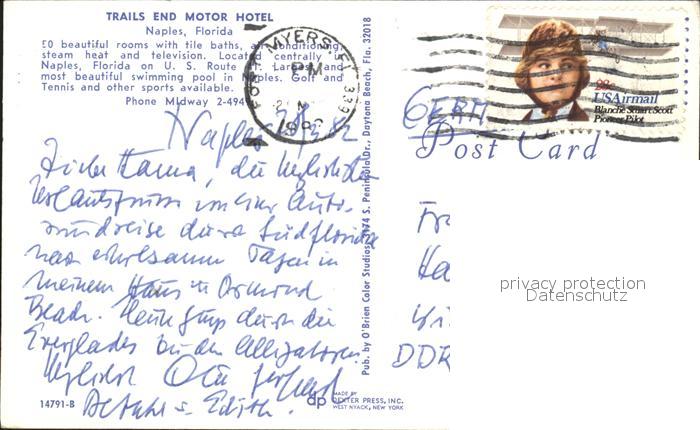 TRAILS END MOTOR HOTEL
Naples, Florida
50 beautiful rooms with tile baths, air conditioning,
steam heat and television. Located centrally in
Naples, Florida on U. S. Route 41. Largest and
most beautiful swimming pool in Naples. Golf and
Tennis and other sports available.
Phone MIdway 2-494
FORT MYERS, FL 339
PM
Naples
Liebe Hanna, die herzlichsten
Urlaubsgrüsse von einer Auto-
rundreise durch Südflorida
nach erholsamen Tagen in
meinem Haus in Ormond
Beach. Heute ging's durch die
Everglades zu den Alligatoren.
Herzlichst
u. Edith.
14791-B
Pub. by O'Brien Color Studios, 3174 S. Peninsula Dr., Daytona Beach, Fla. 32018
dp MADE BY
DEXTER PRESS, INC.
WEST NYACK, NEW YORK
28c
USAirmail
Blanche Stuart Scott
Pioneer Pilot
GERM
Post Card
Fr
Ha
DDR
privacy protection
Datenschutz